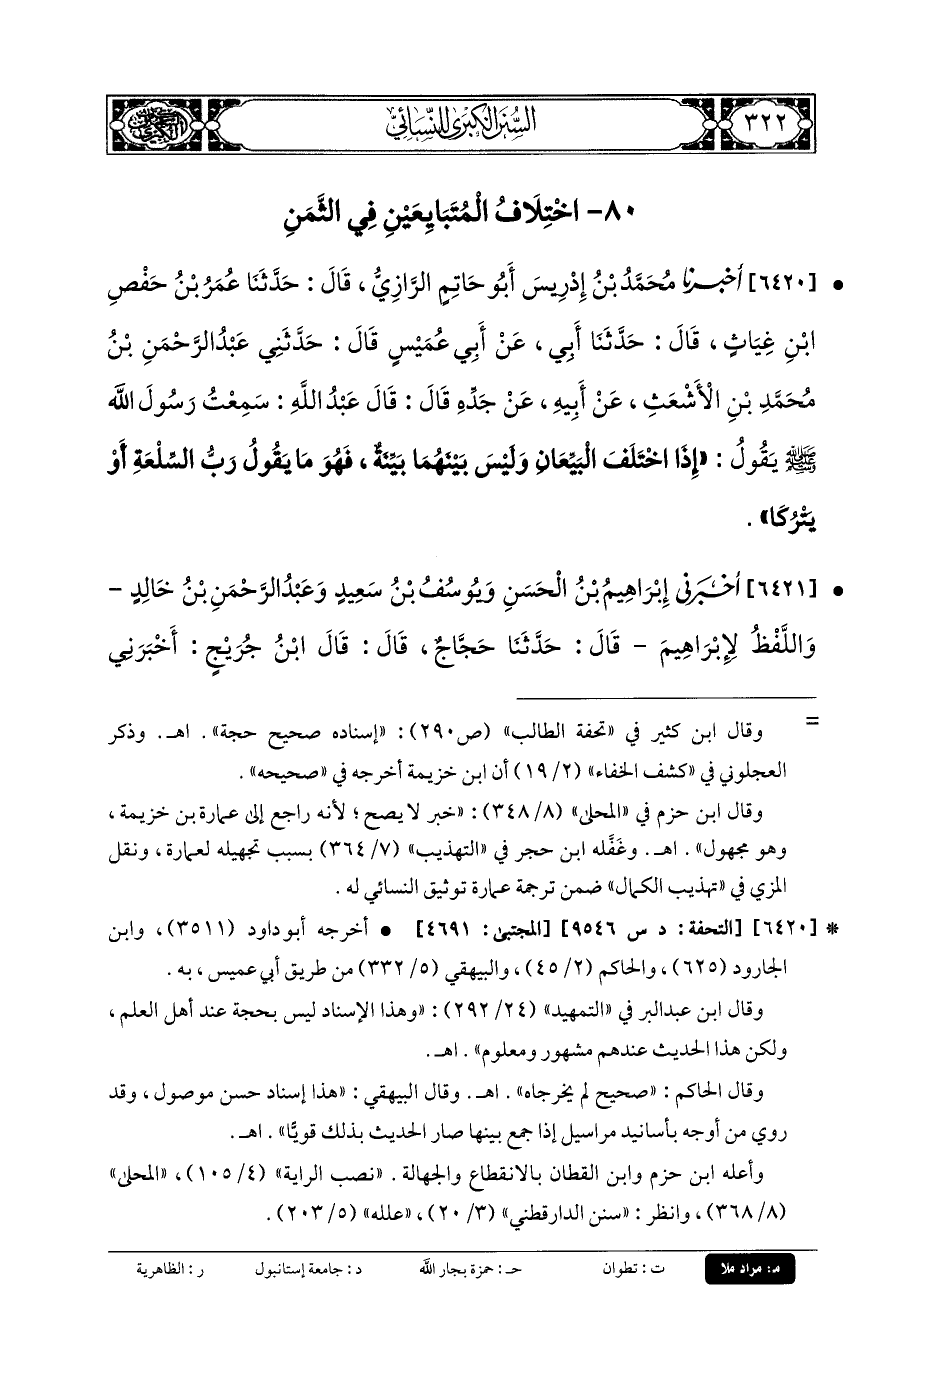 ٣٢٢
السُّنَنُ الكِبْرَى لِلنَّسَائِيِّ
٨٠- اخْتِلَافُ الْمُتَبَايِعَيْنِ فِي الثَّمَنِ
• [٦٤٢٠] أَخْبَرَنَا مُحَمَّدُ بْنُ إِدْرِيسَ أَبُو حَاتِمٍ الرَّازِيُّ ، قَالَ : حَدَّثَنَا عُمَرُ بْنُ حَفْصِ
ابْنِ غِيَاثٍ ، قَالَ : حَدَّثَنَا أَبِي ، عَنْ أَبِي عُمَيْسٍ قَالَ : حَدَّثَنِي عَبْدُ الرَّحْمَنِ بْنُ
مُحَمَّدِ بْنِ الْأَشْعَثِ ، عَنْ أَبِيهِ ، عَنْ جَدِّهِ قَالَ : قَالَ عَبْدُ اللَّهِ : سَمِعْتُ رَسُولَ اللَّه
ﷺ يَقُولُ : «إِذَا اخْتَلَفَ الْبَيِّعَانِ وَلَيْسَ بَيْنَهُمَا بَيِّنَةٌ ، فَهُوَ مَا يَقُولُ رَبُّ السِّلْعَةِ أَوْ
يَتْرُكَا» .
• [٦٤٢١] أَخْبَرَنِي إِبْرَاهِيمُ بْنُ الْحَسَنِ وَيُوسُفُ بْنُ سَعِيدٍ وَعَبْدُ الرَّحْمَنِ بْنُ خَالِدٍ –
وَاللَّفْظُ لِإِبْرَاهِيمَ – قَالَ : حَدَّثَنَا حَجَّاجٌ ، قَالَ : قَالَ ابْنُ جُرَيْجٍ : أَخْبَرَنِي
= وقال ابن كثير في «تحفة الطالب» (ص٢٩٠): «إسناده صحيح حجة» . اهـ. وذكر
العجلوني في «كشف الخفاء» (٢/ ١٩) أن ابن خزيمة أخرجه في «صحيحه» .
وقال ابن حزم في «المحلى» (٨/ ٣٤٨): «خبر لا يصح ؛ لأنه راجع إلى عمارة بن خزيمة ،
وهو مجهول» . اهـ. وغَفَّله ابن حجر في «التهذيب» (٧/ ٣٦٤) بسبب تجهيله لعمارة ، ونقل
المزي في «تهذيب الكمال» ضمن ترجمة عمارة توثيق النسائي له .
* [٦٤٢٠] [التحفة: د س ٩٥٤٦] [المجتبى: ٤٦٩١] • أخرجه أبو داود (٣٥١١)، وابن
الجارود (٦٢٥)، والحاكم (٢/ ٤٥)، والبيهقي (٥/ ٣٣٢) من طريق أبي عميس ، به .
وقال ابن عبدالبر في «التمهيد» (٢٤/ ٢٩٢): «وهذا الإسناد ليس بحجة عند أهل العلم ،
ولكن هذا الحديث عندهم مشهور ومعلوم» . اهـ.
وقال الحاكم : «صحيح لم يخرجاه» . اهـ. وقال البيهقي : «هذا إسناد حسن موصول ، وقد
روي من أوجه بأسانيد مراسيل إذا جمع بينها صار الحديث بذلك قويًّا» . اهـ.
وأعله ابن حزم وابن القطان بالانقطاع والجهالة . «نصب الراية» (٤/ ١٠٥)، «المحلى»
(٨/ ٣٦٨)، وانظر : «سنن الدارقطني» (٣/ ٢٠)، «علله» (٥/ ٢٠٣) .
م: مراد ملا ت : تطوان حـ : حمزة بجار اللَّه د : جامعة إستانبول ر : الظاهرية